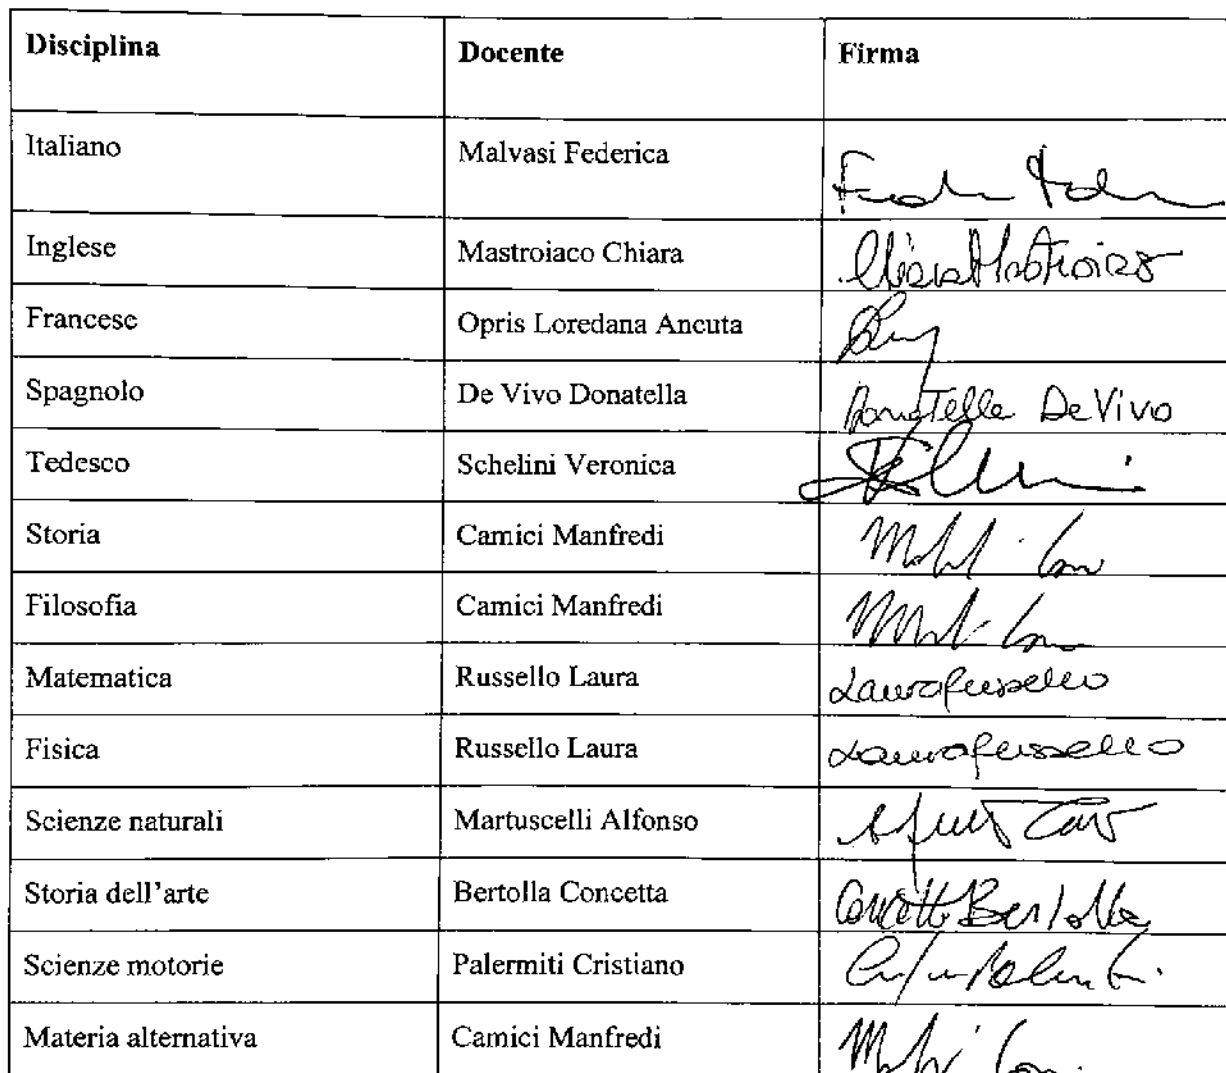 Disciplina Docente Firma
Italiano Malvasi Federica
Inglese Mastroiaco Chiara Chiara Mastroiaco
Francese Opris Loredana Ancuta
Spagnolo De Vivo Donatella Donatella De Vivo
Tedesco Schelini Veronica
Storia Camici Manfredi
Filosofia Camici Manfredi
Matematica Russello Laura Laura Russello
Fisica Russello Laura Laura Russello
Scienze naturali Martuscelli Alfonso
Storia dell'arte Bertolla Concetta Concetta Bertolla
Scienze motorie Palermiti Cristiano
Materia alternativa Camici Manfredi